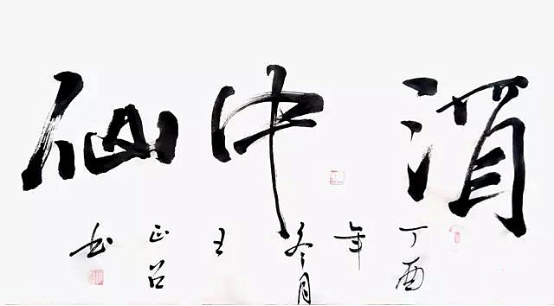 酒中仙
丁酉年冬月王正召书